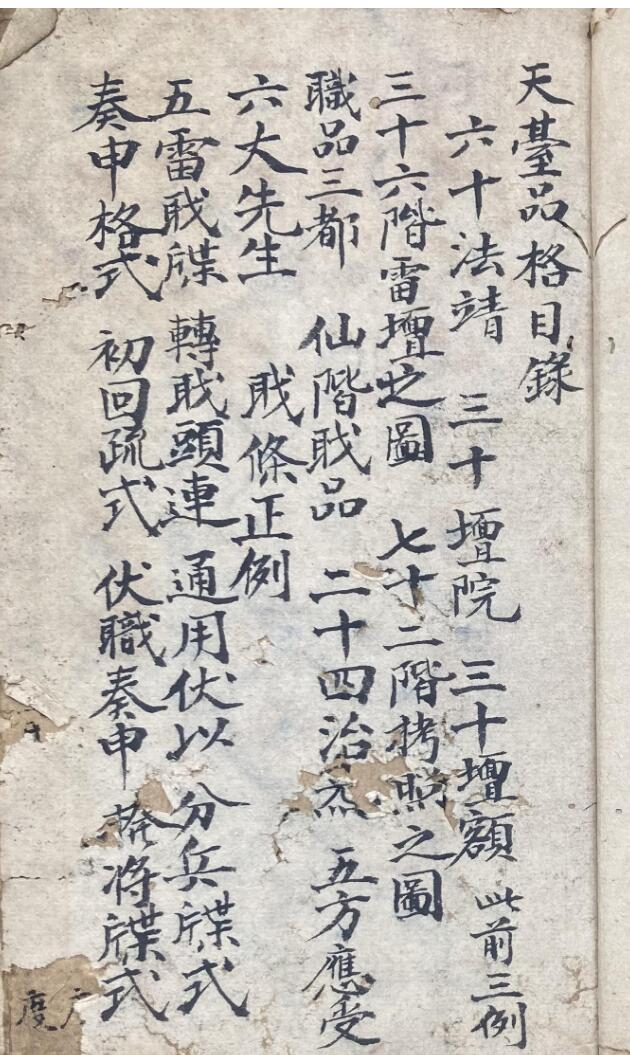 天臺品格目錄
六十法靖 三十壇院 三十壇額 此前三例
三十六階雷壇之圖 七十二階拷照之圖
職品三都 仙階職品 二十四治炁 五方應受
六大先生 職條正例
五雷職牒 轉職頭連 通用伏以 分兵牒式
奏申格式 初回疏式 伏職奏申 發將牒式
度